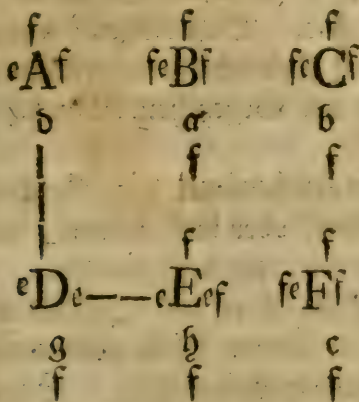 f f f
eAf feBf feCf
d a b
f f
f f
eDe——eEef feFf.
g h c
f f f